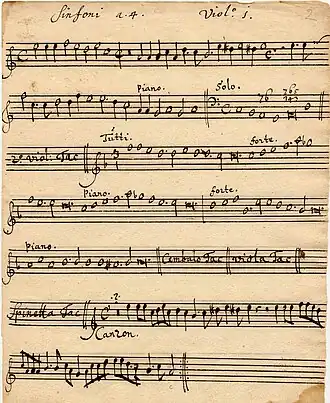 Sinfoni a. 4. Viol.º 1. 2
piano. Solo.
76 765
Tutti. forte.
2.º viol. Tac 3
piano. forte.
piano.
Cembalo Tac viola Tac
Spinetta Tac
Canzon.